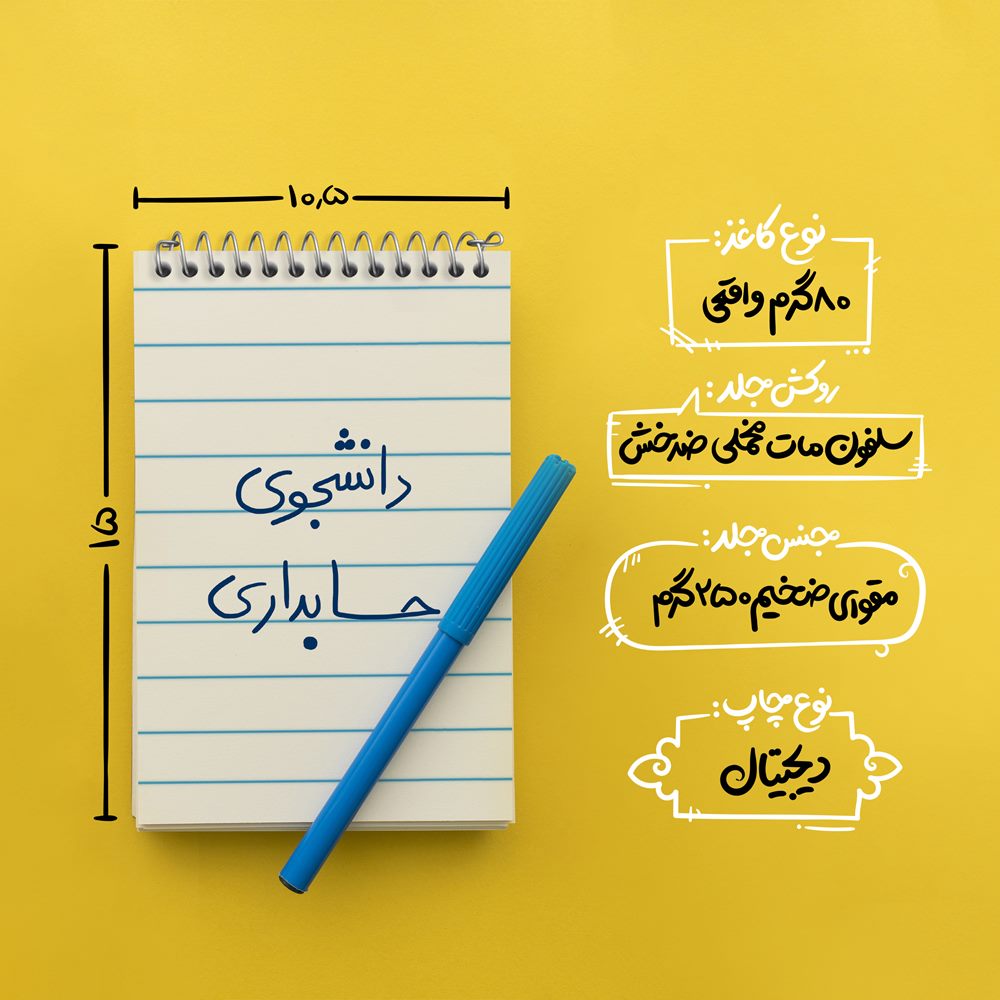 ۱۰٫۵
۱۵
دانشجوی
حسابداری
نوع کاغذ:
۸۰گرم واقعی
روکش جلد:
سلفون مات مخملی ضدخش
جنس جلد:
مقوای ضخیم ۲۵۰گرم
نوع چاپ:
دیجیتال